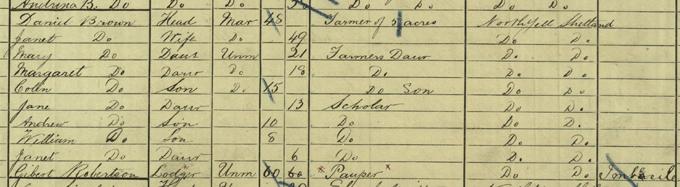 Andrina B. Do Do Do Do Do Do Do
Daniel Brown Head Mar 45 Farmer of 5 acres North Yell Shetland
Janet Do Wife Do 49 Do Do
Mary Do Daur Unm 21 Farmers Daur Do Do
Margaret Do Daur Do 18 Do Do Do.
Colin Do Son Do 15 Do Son Do Do.
Jane Do Daur 13 Scholar Do D.
Andrew Do Son 10 Do Do D.
William Do Son 8 Do Do Do.
Janet Do Daur 6 Do Do Do.
Gibert Robertson Lodger Unm 60 60 Pauper Do. Do. Imbecile